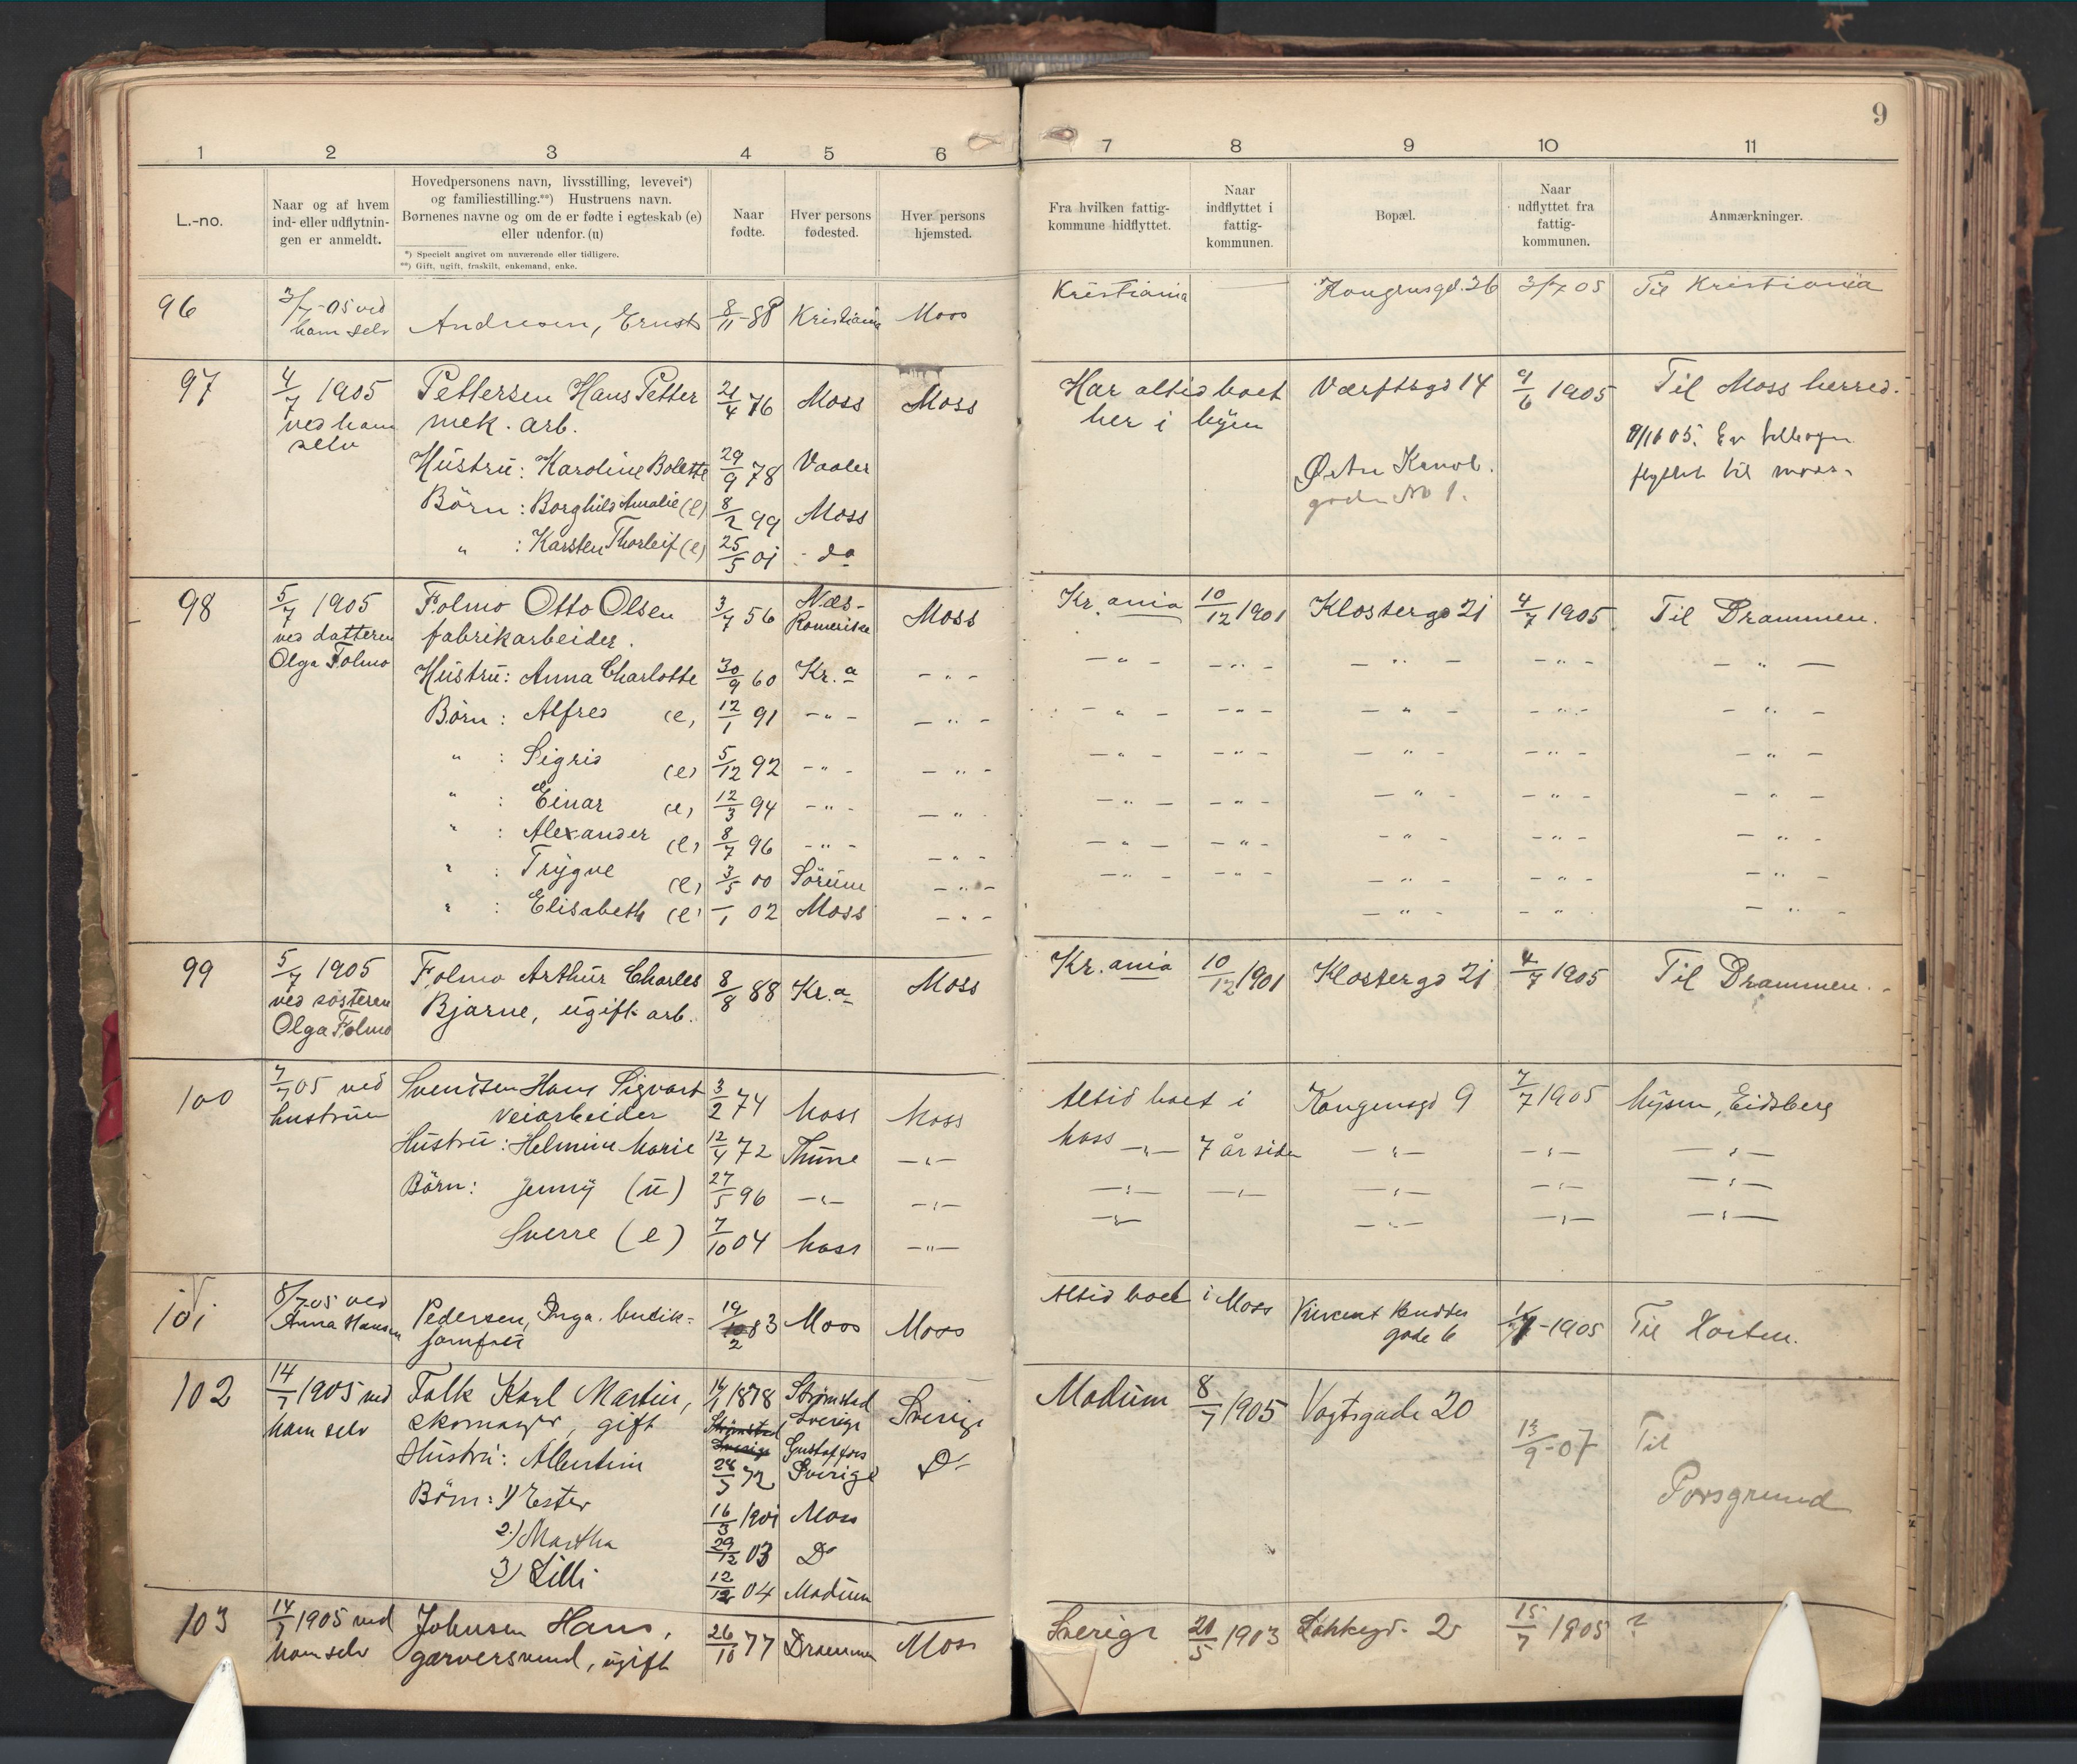 9
1 2 3 4 5 6 7 8 9 10 11
L.-no.
Naar og af hvem
ind- eller udflytnin-
gen er anmeldt.
Hovedpersonens navn, livsstilling, levevei*)
og familiestilling.**) Hustruens navn.
Børnenes navne og om de er fødte i egteskab (e)
eller udenfor. (u)
*) Specielt angivet om nuværende eller tidligere.
**) Gift, ugift, fraskilt, enkemand, enke.
Naar
fødte.
Hver persons
fødested.
Hver persons
hjemsted.
Fra hvilken fattig-
kommune hidflyttet.
Naar
indflyttet i
fattig-
kommunen.
Bopæl.
Naar
udflyttet fra
fattig-
kommunen.
Anmærkninger.
96 3/7-05 ved Kristiania Kongensgd. 26 3/7 05 Til Kristiania
ham selv Andresen, Ernst 8/11-88 Kristiania Moss
97 4/7 1905 Pettersen Hans Petter 21/4 76 Moss Moss Har altid boet Værftsgd 14 9/6 1905 Til Moss herred.
ved ham mek. arb. her i byen
selv
Hustru: Karoline Bolette 29/9 78 Vaaler Østre Kanal. 05. Er
gaden No 1. flyttet til moss.
Börn: Borghild Amalie (e) 8/2 99 Moss
" : Karsten Thorleif (e) 25/5 01 - do
98 5/7 1905 Folmo Otto Olsen 3/7 56 Næs- Moss Kr.ania 10/12 1901 Klostergd 21 4/7 1905 Til Drammen.
ved datteren fabrikarbeider. Romerike
Olga Folmo Hustru: Anna Charlotte 30/9 60 Kr.a - " - - " - - " - - " - - " - - " -
Börn: Alfred (e) 12/1 91 - " - - " - - " - - " - - " - - " - - " -
" : Sigrid (e) 5/12 92 - " - - " - - " - - " - - " - - " - - " -
" : Einar (e) 12/3 94 - " - - " - - " - - " - - " - - " - - " -
" : Alexander (e) 8/7 96 - " - - " - - " - - " - - " - - " - - " -
" : Trygve (e) 3/5 00 Sörum - " - - " - - " - - " - - " - - " -
" : Elisabeth (e) -/1 02 Moss - " - - " - - " - - " -
99 5/7 1905 Folmo Arthur Charles 8/8 88 Kr.a Moss Kr.ania 10/12 1901 Klostergd 21 4/7 1905 Til Drammen.
ved søsteren Bjarne, ugift arb.
Olga Folmo
100 7/7 05 ved Svendsen Hans Sigvart 3/2 74 Moss Moss Altid boet i Kongensgd 9 7/7 1905 Mysen, Eidsberg
hustruen veiarbeider Moss
Hustru: Helmine Marie 12/4 72 Thune - " - - " - 7 år siden - " - - " - - " -
Börn: Jenny (u) 27/5 96 - " - - " - - " - - " - - " - - " - - " -
Sverre (e) 7/10 04 Moss - " - - " - - " - - " - - " -
101 8/7 05 ved Pedersen, Inga. butik- 19/2 83 Moss Moss Altid boet i Moss Vincent Buddes 1905 Til Horten.
Anna Hansen jomfru gade 6
102 14/7 1905 ved Falk Karl Martin, 1878 Strømstad Sverige Modum 8/7 1905 Vogtsgade 20
ham selv skomager, gift Strømstad Sverige Sverige
Hustru: Albertine 28/3 72 Gustaffors Sverige Do 13/9-07 Til
Börn: 1) Ester 16/3 1901 Moss Porsgrund
2.) Martha 29/12 03 Do
3) Lilli 12/12 04 Modum
103 14/7 1905 ved Johnsen Hans, 26/10 77 Drammen Moss Sverige 20/5 1903 15/7 1905 ?
ham selv garversvend, ugift